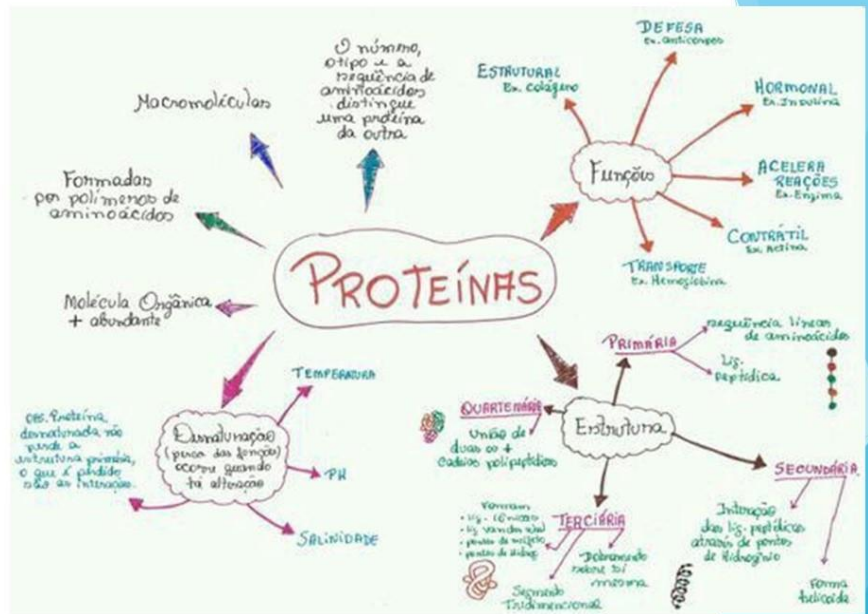 PROTEÍNAS
O número,
o tipo e a
sequência de
aminoácidos
distingue
uma proteína
da outra
Macromoléculas
Formadas
por polímeros de
aminoácidos
Molécula Orgânica
+ abundante
Funções
ESTRUTURAL
Ex. colágeno
DEFESA
Ex. anticorpos
HORMONAL
Ex. Insulina
ACELERA
REAÇÕES
Ex. Enzima
CONTRÁTIL
Ex. Actina
TRANSPORTE
Ex. Hemoglobina
Estrutura
PRIMÁRIA
sequência linear
de aminoácidos
Lig.
peptídica
SECUNDÁRIA
Interação
das lig. peptídicas
através de pontes
de Hidrogênio
Forma
helicoide
TERCIÁRIA
Formam
• lig. iônicas
• pontes de
• pontes de hidrog
Segmento
Tridimencional
Dobramento
sobre si
mesma
QUARTENÁRIA
União de
duas ou +
cadeias polipeptídicas
Desnaturação
(perca das função)
ocorre quando
há alteração
TEMPERATURA
PH
SALINIDADE
OBS. Proteína
desnaturada não
perde a
estrutura primária,
o que é perdido
são as interação.